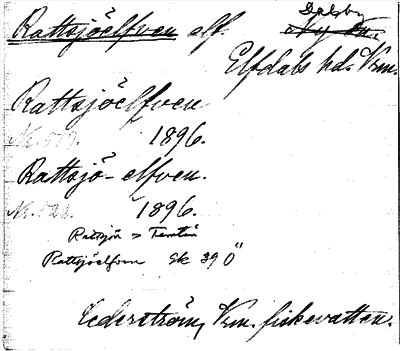 Rattsjöelfven elf. Dalby
Ny sn.
Elfdals hd. Vrm.
Rattsjöelfven
1896.
Rattsjö-elfven.
1896.
Rattsjön > Femtån
Rattsjöelfven Gk 39 Ö
Cederström, Vrm. fiskevatten.